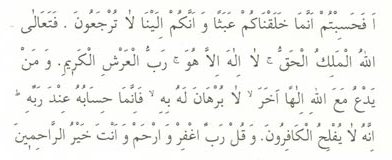 اَ فَحَسِبْتُمْ اَنَّمَا خَلَقْنَاكُمْ عَبَثًا وَ اَنَّكُمْ اِلَيْنَا لَا تُرْجَعُونَ . فَتَعَالَى
اللهُ الْمَلِكُ الْحَقُّ ۚ لَا اِلٰهَ اِلَّا هُوَ ۚ رَبُّ الْعَرْشِ الْكَرِيمِ. وَ مَنْ
يَدْعُ مَعَ اللهِ اِلٰهًا آخَرَ ۙ لَا بُرْهَانَ لَهُ بِهِ ۙ فَاِنَّمَا حِسَابُهُ عِنْدَ رَبِّهِ ۗ
اِنَّهُ لَا يُفْلِحُ الْكَافِرُونَ. وَ قُلْ رَبِّ اغْفِرْ وَ ارْحَمْ وَ اَنْتَ خَيْرُ الرَّاحِمِينَ